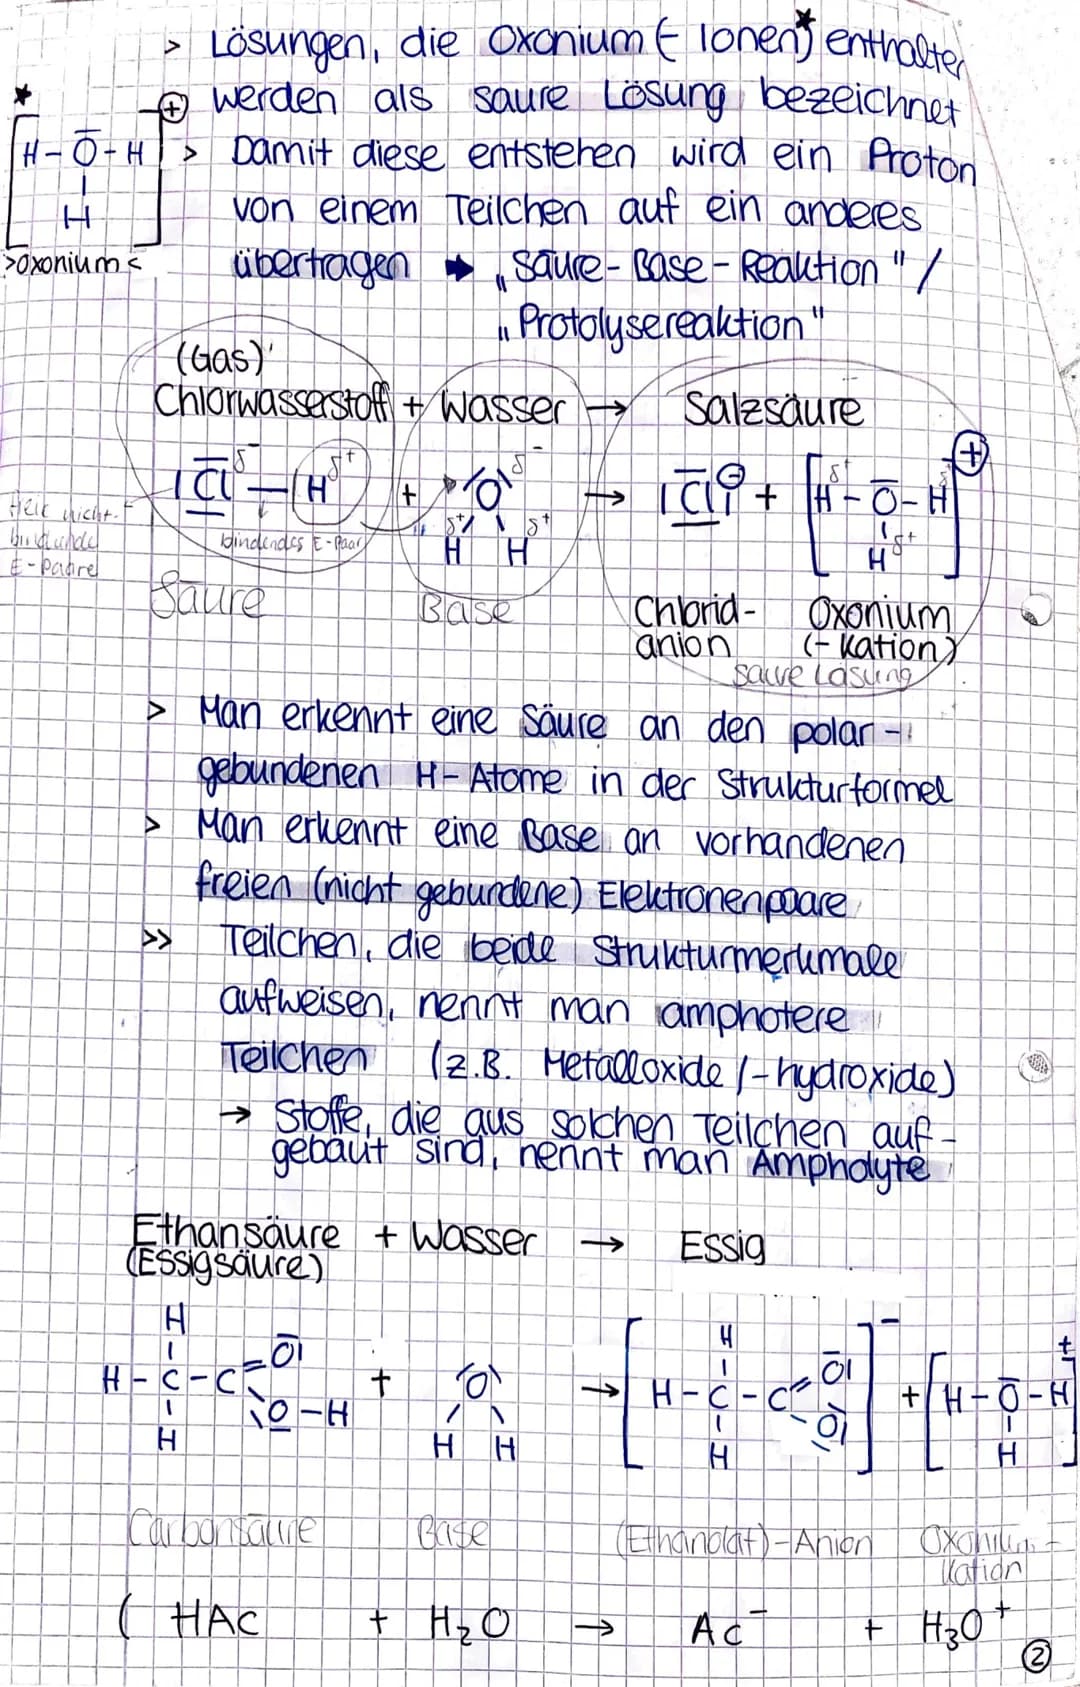 > Lösungen, die Oxonium (-Ionen)* enthalten
werden als saure Lösung bezeichnet
*
[H-O-H
H]⊕
>oxonium<
> Damit diese entstehen wird ein Proton
von einem Teilchen auf ein anderes
übertragen → „Säure-Base-Reaktion" /
„Protolysereaktion"
(Gas)
Chlorwasserstoff + Wasser → Salzsäure
|Cl δ- — H δ+ + O δ- → |Cl|⊖ + [H δ+ - O - H δ+]⊕
δ+ δ+ H δ+
H H
nicht
bindende
E-Paare
bindendes E-Paar
Säure Base Chlorid- Oxonium
anion (-kation)
saure Lösung
> Man erkennt eine Säure an den polar-
gebundenen H-Atome in der Strukturformel
> Man erkennt eine Base an vorhandenen
freien (nicht gebundene) Elektronenpaare
>> Teilchen, die beide Strukturmerkmale
aufweisen, nennt man amphotere
Teilchen (z.B. Metalloxide/-hydroxide)
→ Stoffe, die aus solchen Teilchen auf-
gebaut sind, nennt man Ampholyte
Ethansäure + Wasser → Essig
(Essigsäure)
H H
H-C-C=O| + O → [H-C-C=O|]⁻ + [H-O-H]+
O-H H H O| H
H H
Carbonsäure Base (Ethanolat)-Anion Oxonium-
kation
( HAc + H₂O → Ac⁻ + H₃O⁺
2